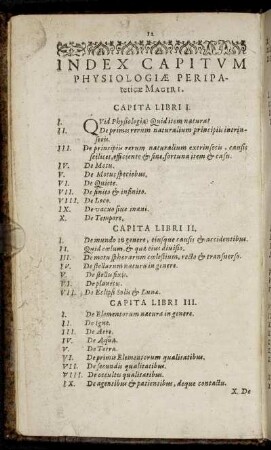 INDEX CAPITVM
PHYSIOLOGIÆ PERIPA-
teticæ MAGIRI.
CAPITA LIBRI I.
I. QVid Physiologia? Quid item natura?
II. De primis rerum naturalium principiis intrin-
secis.
III. De principiis rerum naturalium extrinsecis, causis
scilicet, efficiente & fine, fortuna item & casu.
IV. De Motu.
V. De Motus speciebus.
VI. De Quiete.
VII. De finito & infinito.
VIII. De Loco.
IX. De vacuo siue inani.
X. De Tempore.
CAPITA LIBRI II.
I. De mundo in genere, eiusque causis & accidentibus.
II. Quid cælum, & quæ eius diuisio.
III. De motu sphærarum cælestium, recto & transuerso.
IV. De stellarum natura in genere.
V. De stellis fixis.
VI. De planetis.
VII. De Eclipsi Solis & Lunæ.
CAPITA LIBRI III.
I. De Elementorum natura in genere.
II. De igne.
III. De Aere.
IV. De Aqua.
V. De Terra.
VI. De primis Elementorum qualitatibus.
VII. De secundis qualitatibus.
VIII. De occultis qualitatibus.
IX. De agentibus & patientibus, deque contactu.
X. De